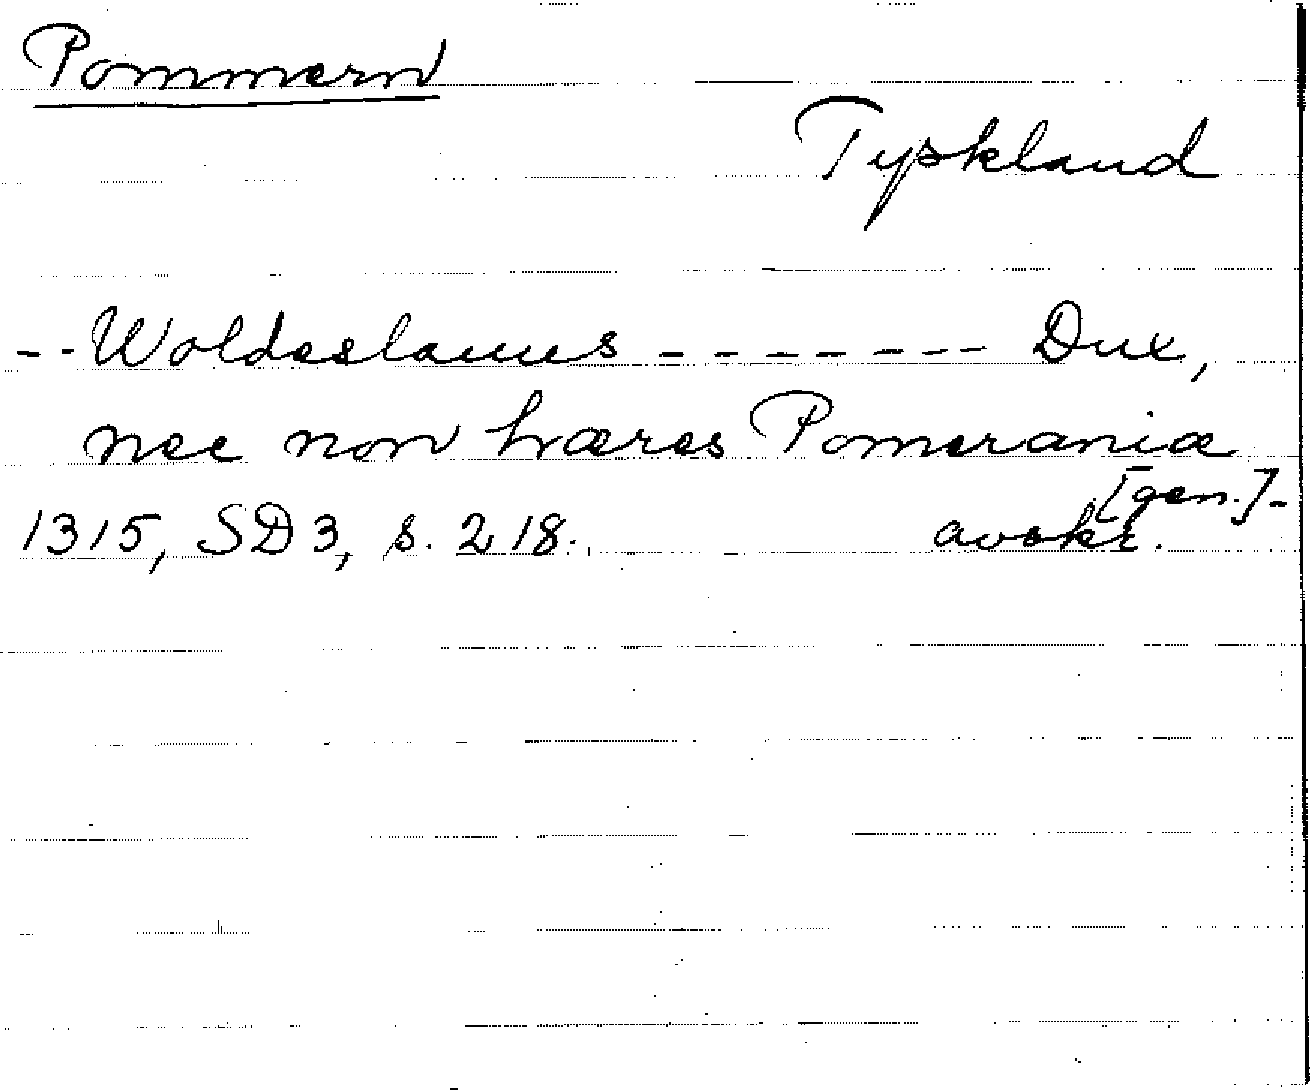 Pommern
Tyskland
-- Woldeslaus - - - - - - - - Dux,
nec non hæres Pomeraniæ
[gen.]-
1315, SD 3, s. 218. avskr.